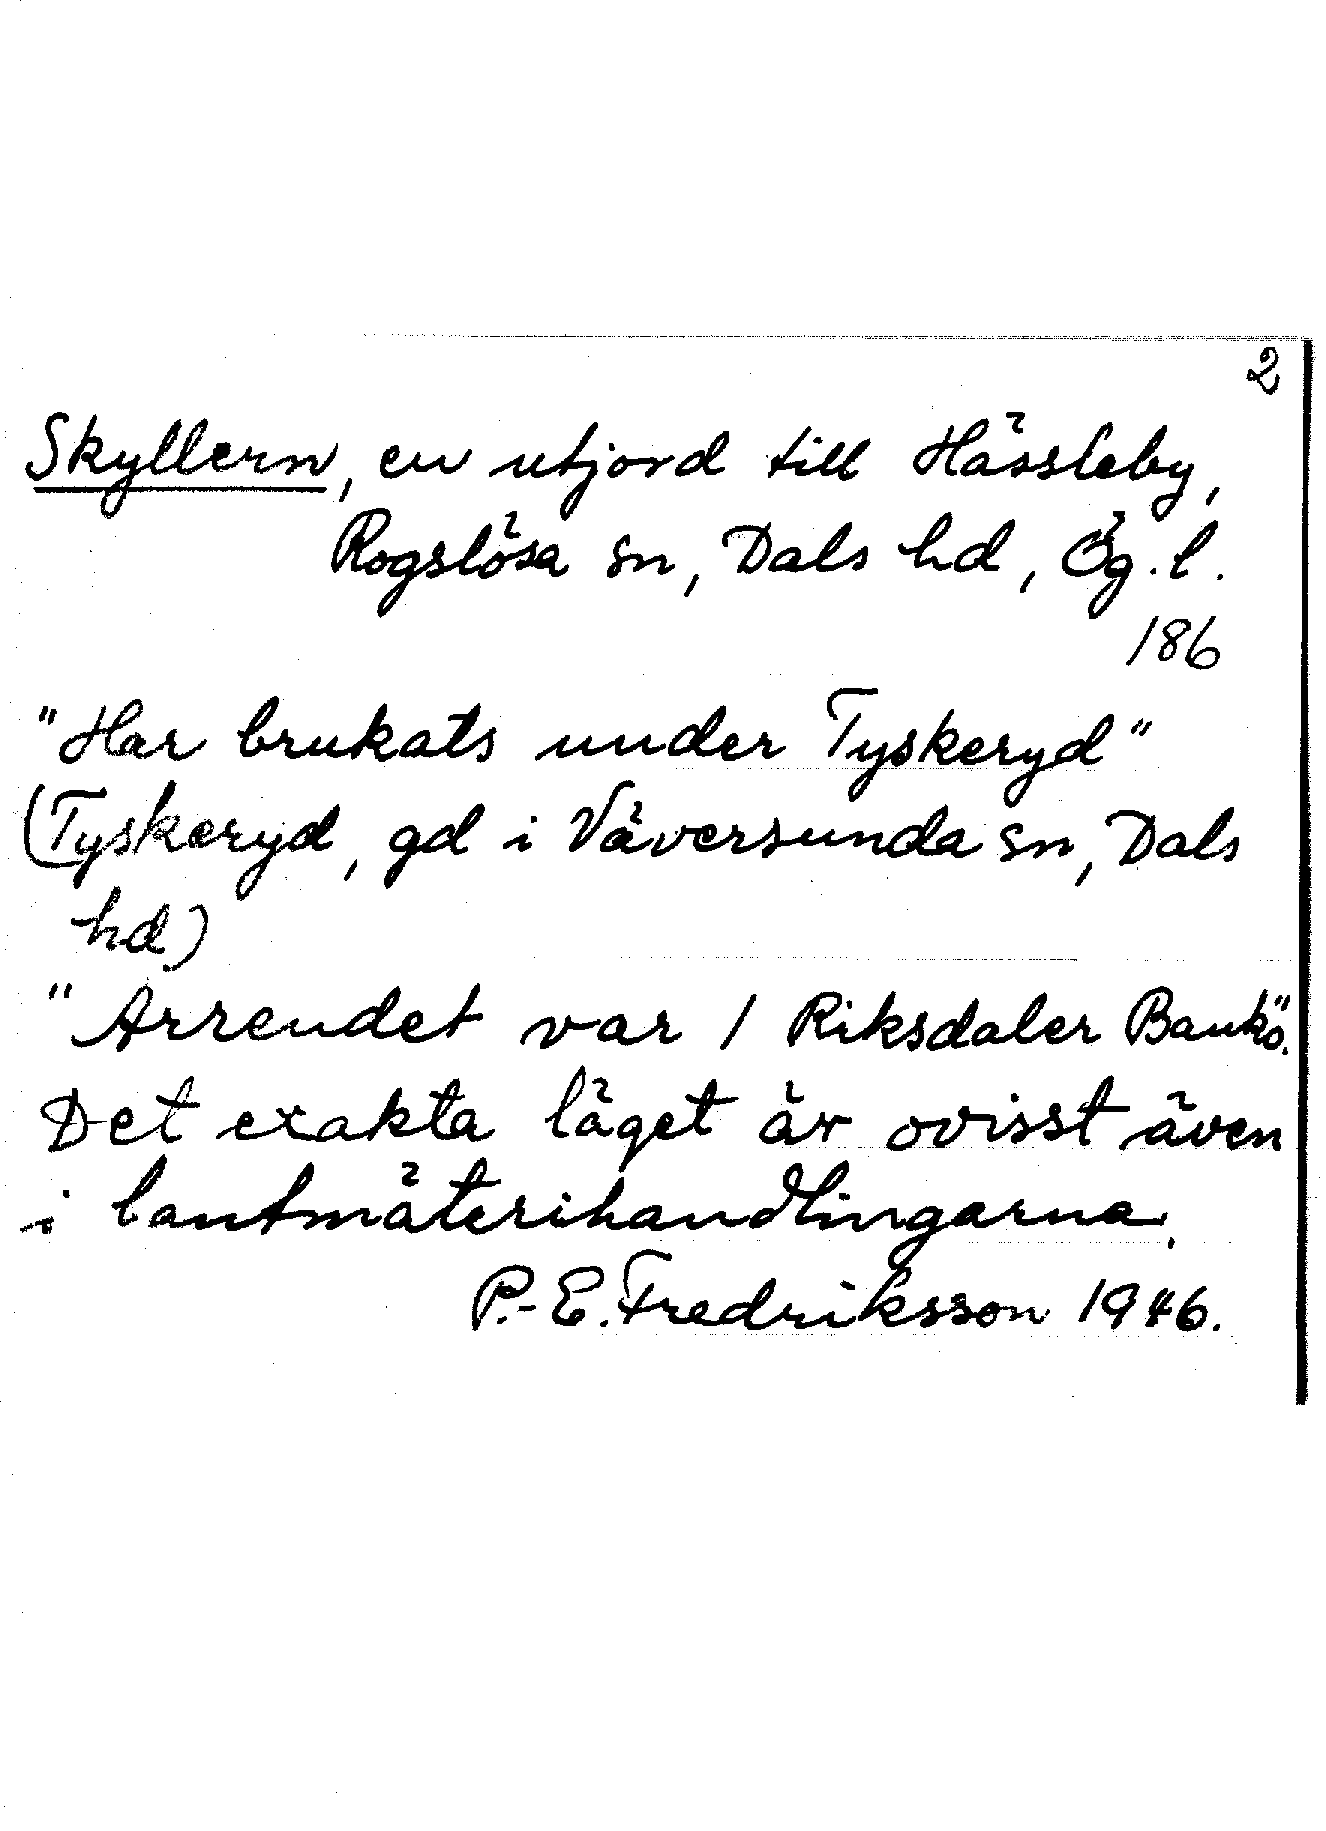 2
Skyllern, en utjord till Hässleby,
Rogslösa sn, Dals hd, Ög. l.
186
"Har brukats under Tyskeryd"
(Tyskeryd, gd i Väversunda sn, Dals
hd)
"Arrendet var 1 Riksdaler Banko".
Det exakta läget är ovisst även
i lantmäterihandlingarna.
P.-E. Fredriksson 1946.